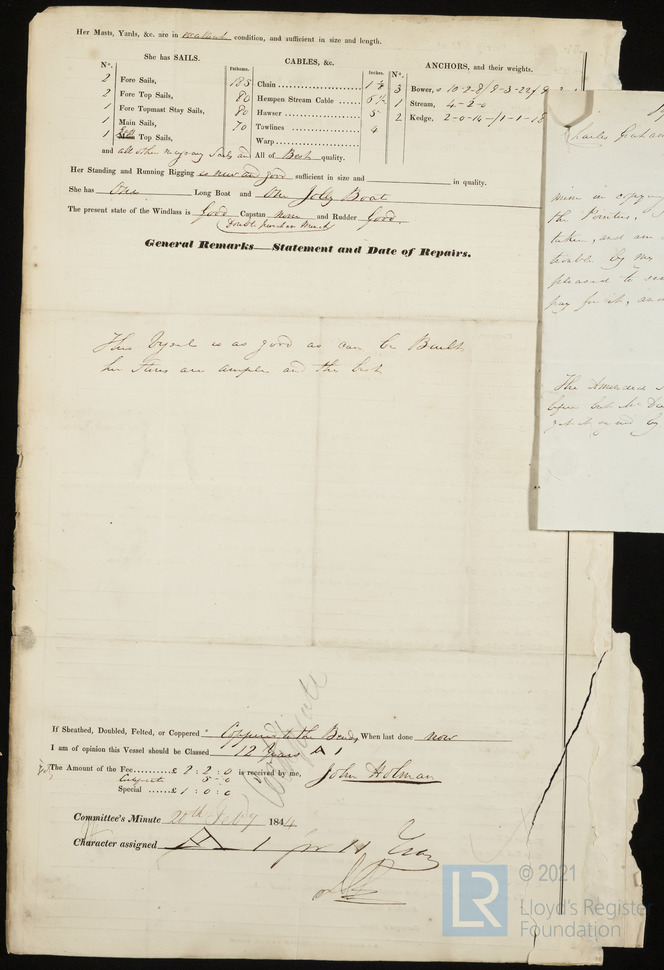 Her Masts, Yards, &c. are in excellent condition, and sufficient in size and length.
She has SAILS.
CABLES, &c.
ANCHORS, and their weights.
N°.
Fathoms.
Inches.
N°.
2 Fore Sails,
185 Chain
3 Bower,
2 Fore Top Sails,
80 Hempen Stream Cable
1 Stream, 4-2-0
1 Fore Topmast Stay Sails,
80 Hawser 5
2 Kedge, 2-0-14-/1-1-18
1 Main Sails,
70 Towlines 4
1 Top Sails,
Warp
and all other necessary Sails and All of Best quality.
Her Standing and Running Rigging is new and good sufficient in size and in quality.
She has One Long Boat and One Jolly Boat
The present state of the Windlass is Good Capstan none and Rudder Good.
General Remarks—Statement and Date of Repairs.
This Vessel is as good as can be Built
her Stores are ample and the best
If Sheathed, Doubled, Felted, or Coppered Coppered to the Bends When last done now
I am of opinion this Vessel should be Classed 12 Years A 1
The Amount of the Fee £ 2:2:0 is received by me, John Holman
Certificate 5-0
Special £ 1:0:0
Committee's Minute 20th Feby 1844
Character assigned A 1 for 11 Years
Charles Graham
mine in copying
the
taken, and am
trouble by my
pleased to
pay for it, and
The Amended
before but Mr
by
LR
© 2021
Lloyd's Register
Foundation